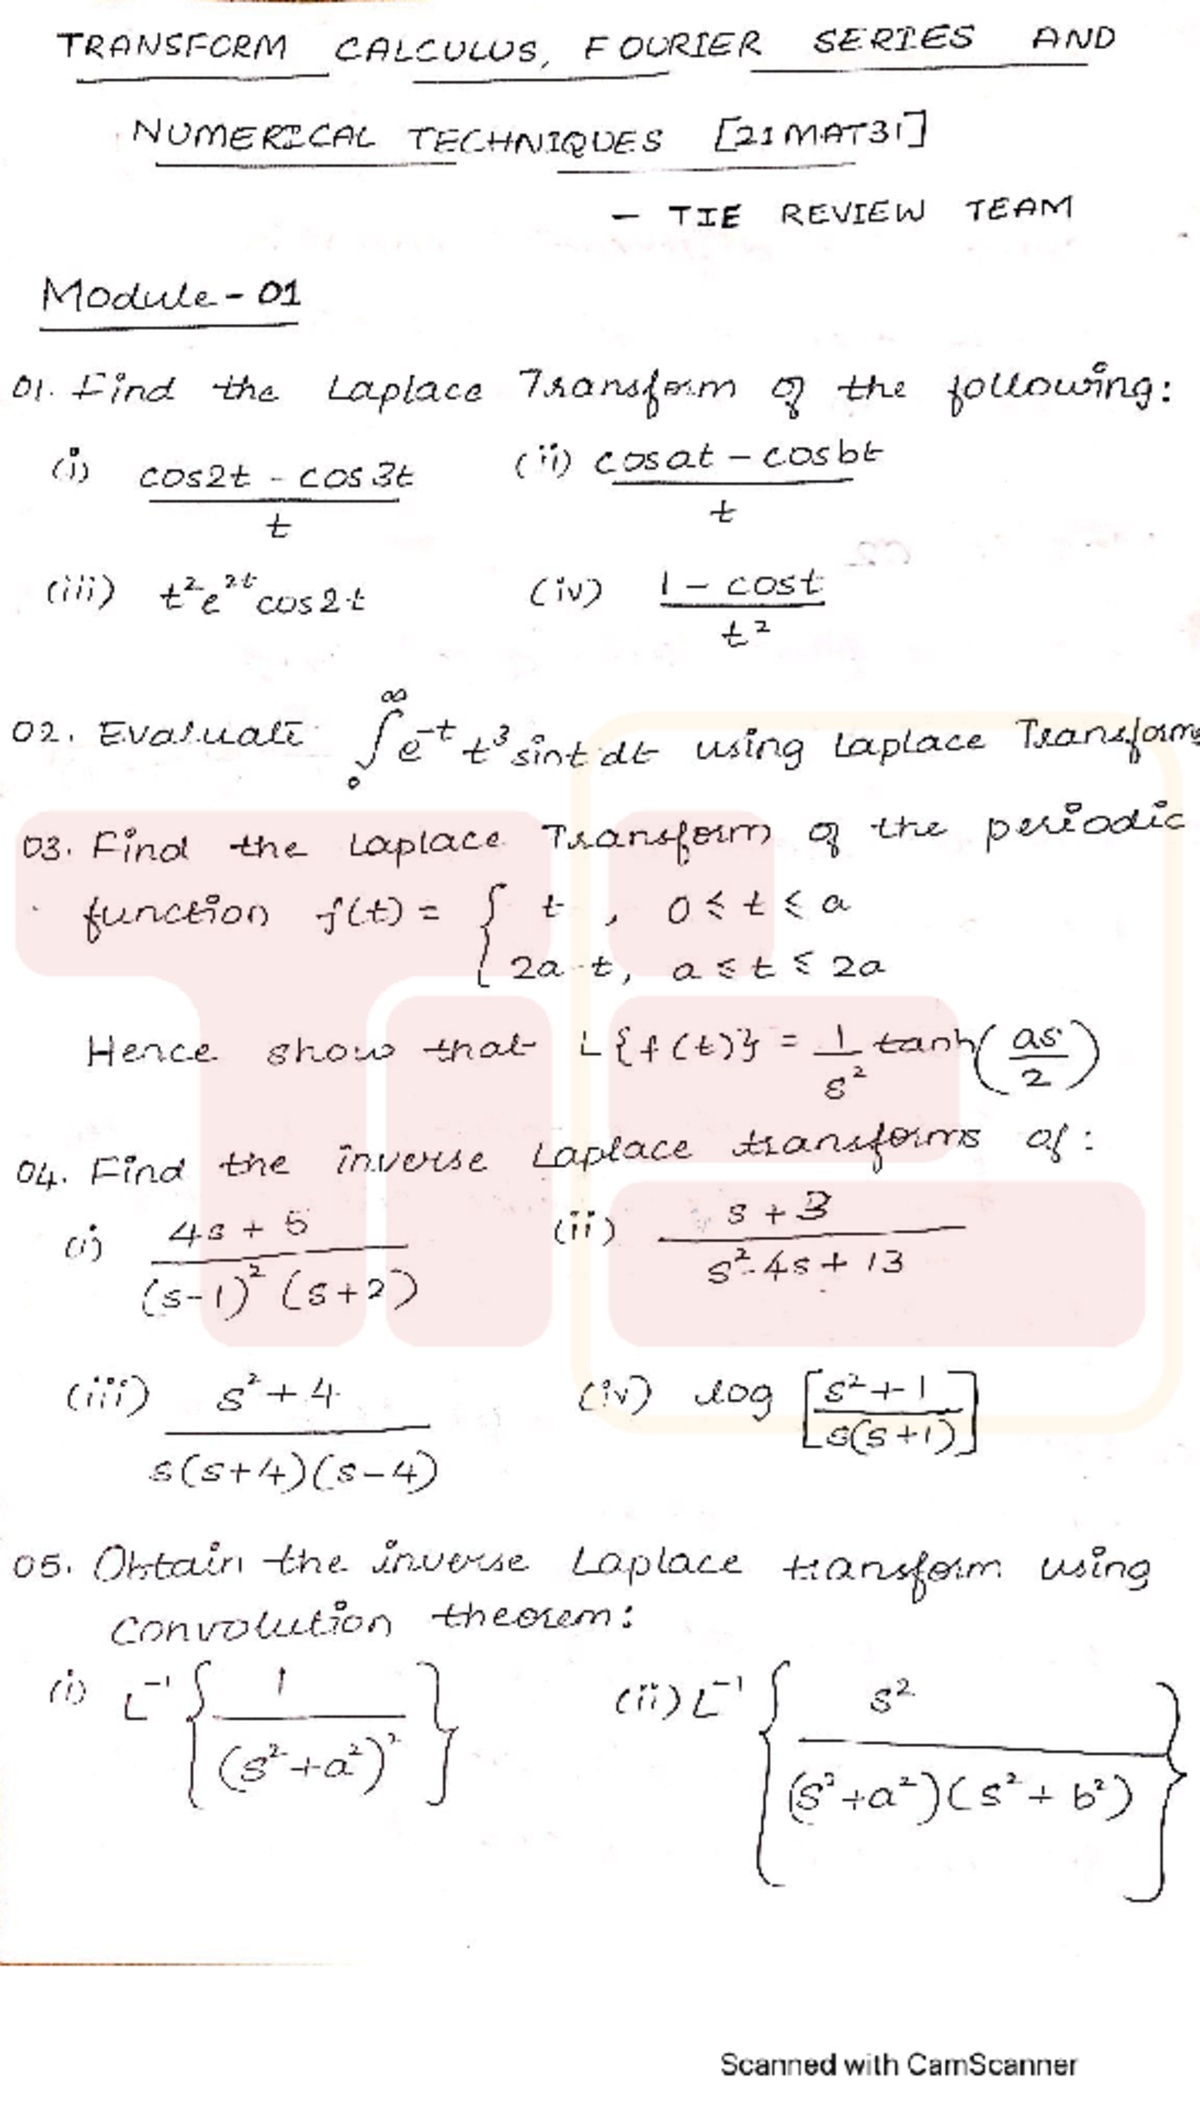 TRANSFORM CALCULUS, FOURIER SERIES AND
NUMERICAL TECHNIQUES [21MAT31]
- TIE REVIEW TEAM
Module - 01
01. Find the Laplace Transform of the following:
(i) cos2t - cos3t / t (ii) cosat - cosbt / t
(iii) t² e^2t cos2t (iv) 1 - cost / t²
02. Evaluate ∫₀^∞ e^-t t³ sint dt using Laplace Transforms
03. Find the Laplace Transform of the periodic
function f(t) = { t , 0 ≤ t ≤ a
2a - t, a ≤ t ≤ 2a
Hence show that L{f(t)} = 1/s² tanh(as/2)
04. Find the inverse Laplace transforms of:
(i) 4s + 5 / (s-1)² (s+2) (ii) s + 3 / s² - 4s + 13
(iii) s² + 4 / s(s+4)(s-4) (iv) log [s² + 1 / s(s+1)]
05. Obtain the inverse Laplace transform using
convolution theorem:
(i) L⁻¹ { 1 / (s² + a²)² } (ii) L⁻¹ { s² / (s² + a²)(s² + b²) }
Scanned with CamScanner